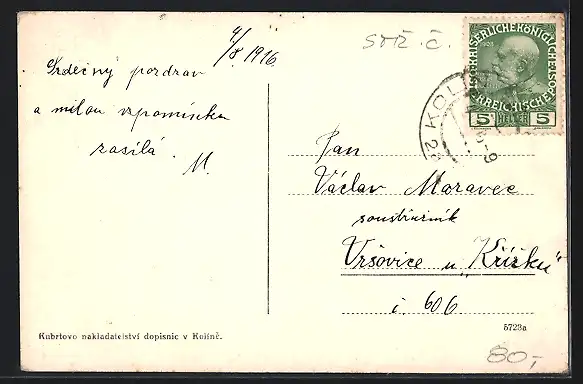 4/8 1916.
Srdečný pozdrav
a milou vzpomínku
zasílá. M.
stř. č.
KAISERLICHE KÖNIGLICHE
1908
ÖSTERREICHISCHE POST
5 HELLER 5
KOLÍN
Pan
Václav Moravec
soustružník
Vršovice u „Křížku“
č. 606
Kubrtovo nakladatelství dopisnic v Kolíně.
5723a
80,-